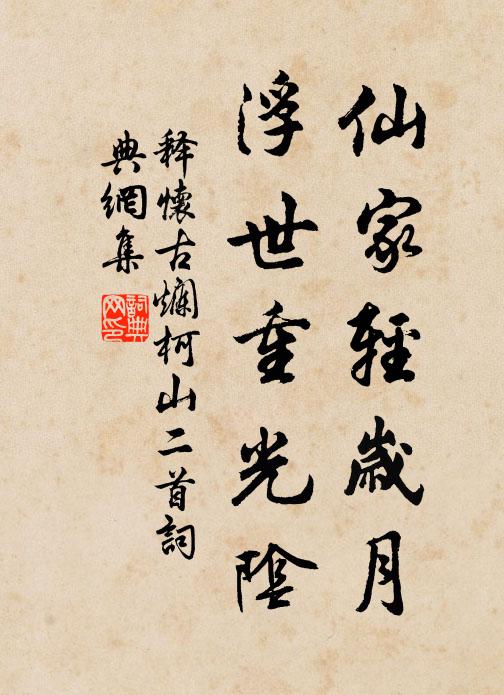 仙家輕歲月
浮世重光陰
释懷古爛柯山二首詞
典網集
詞典
网印